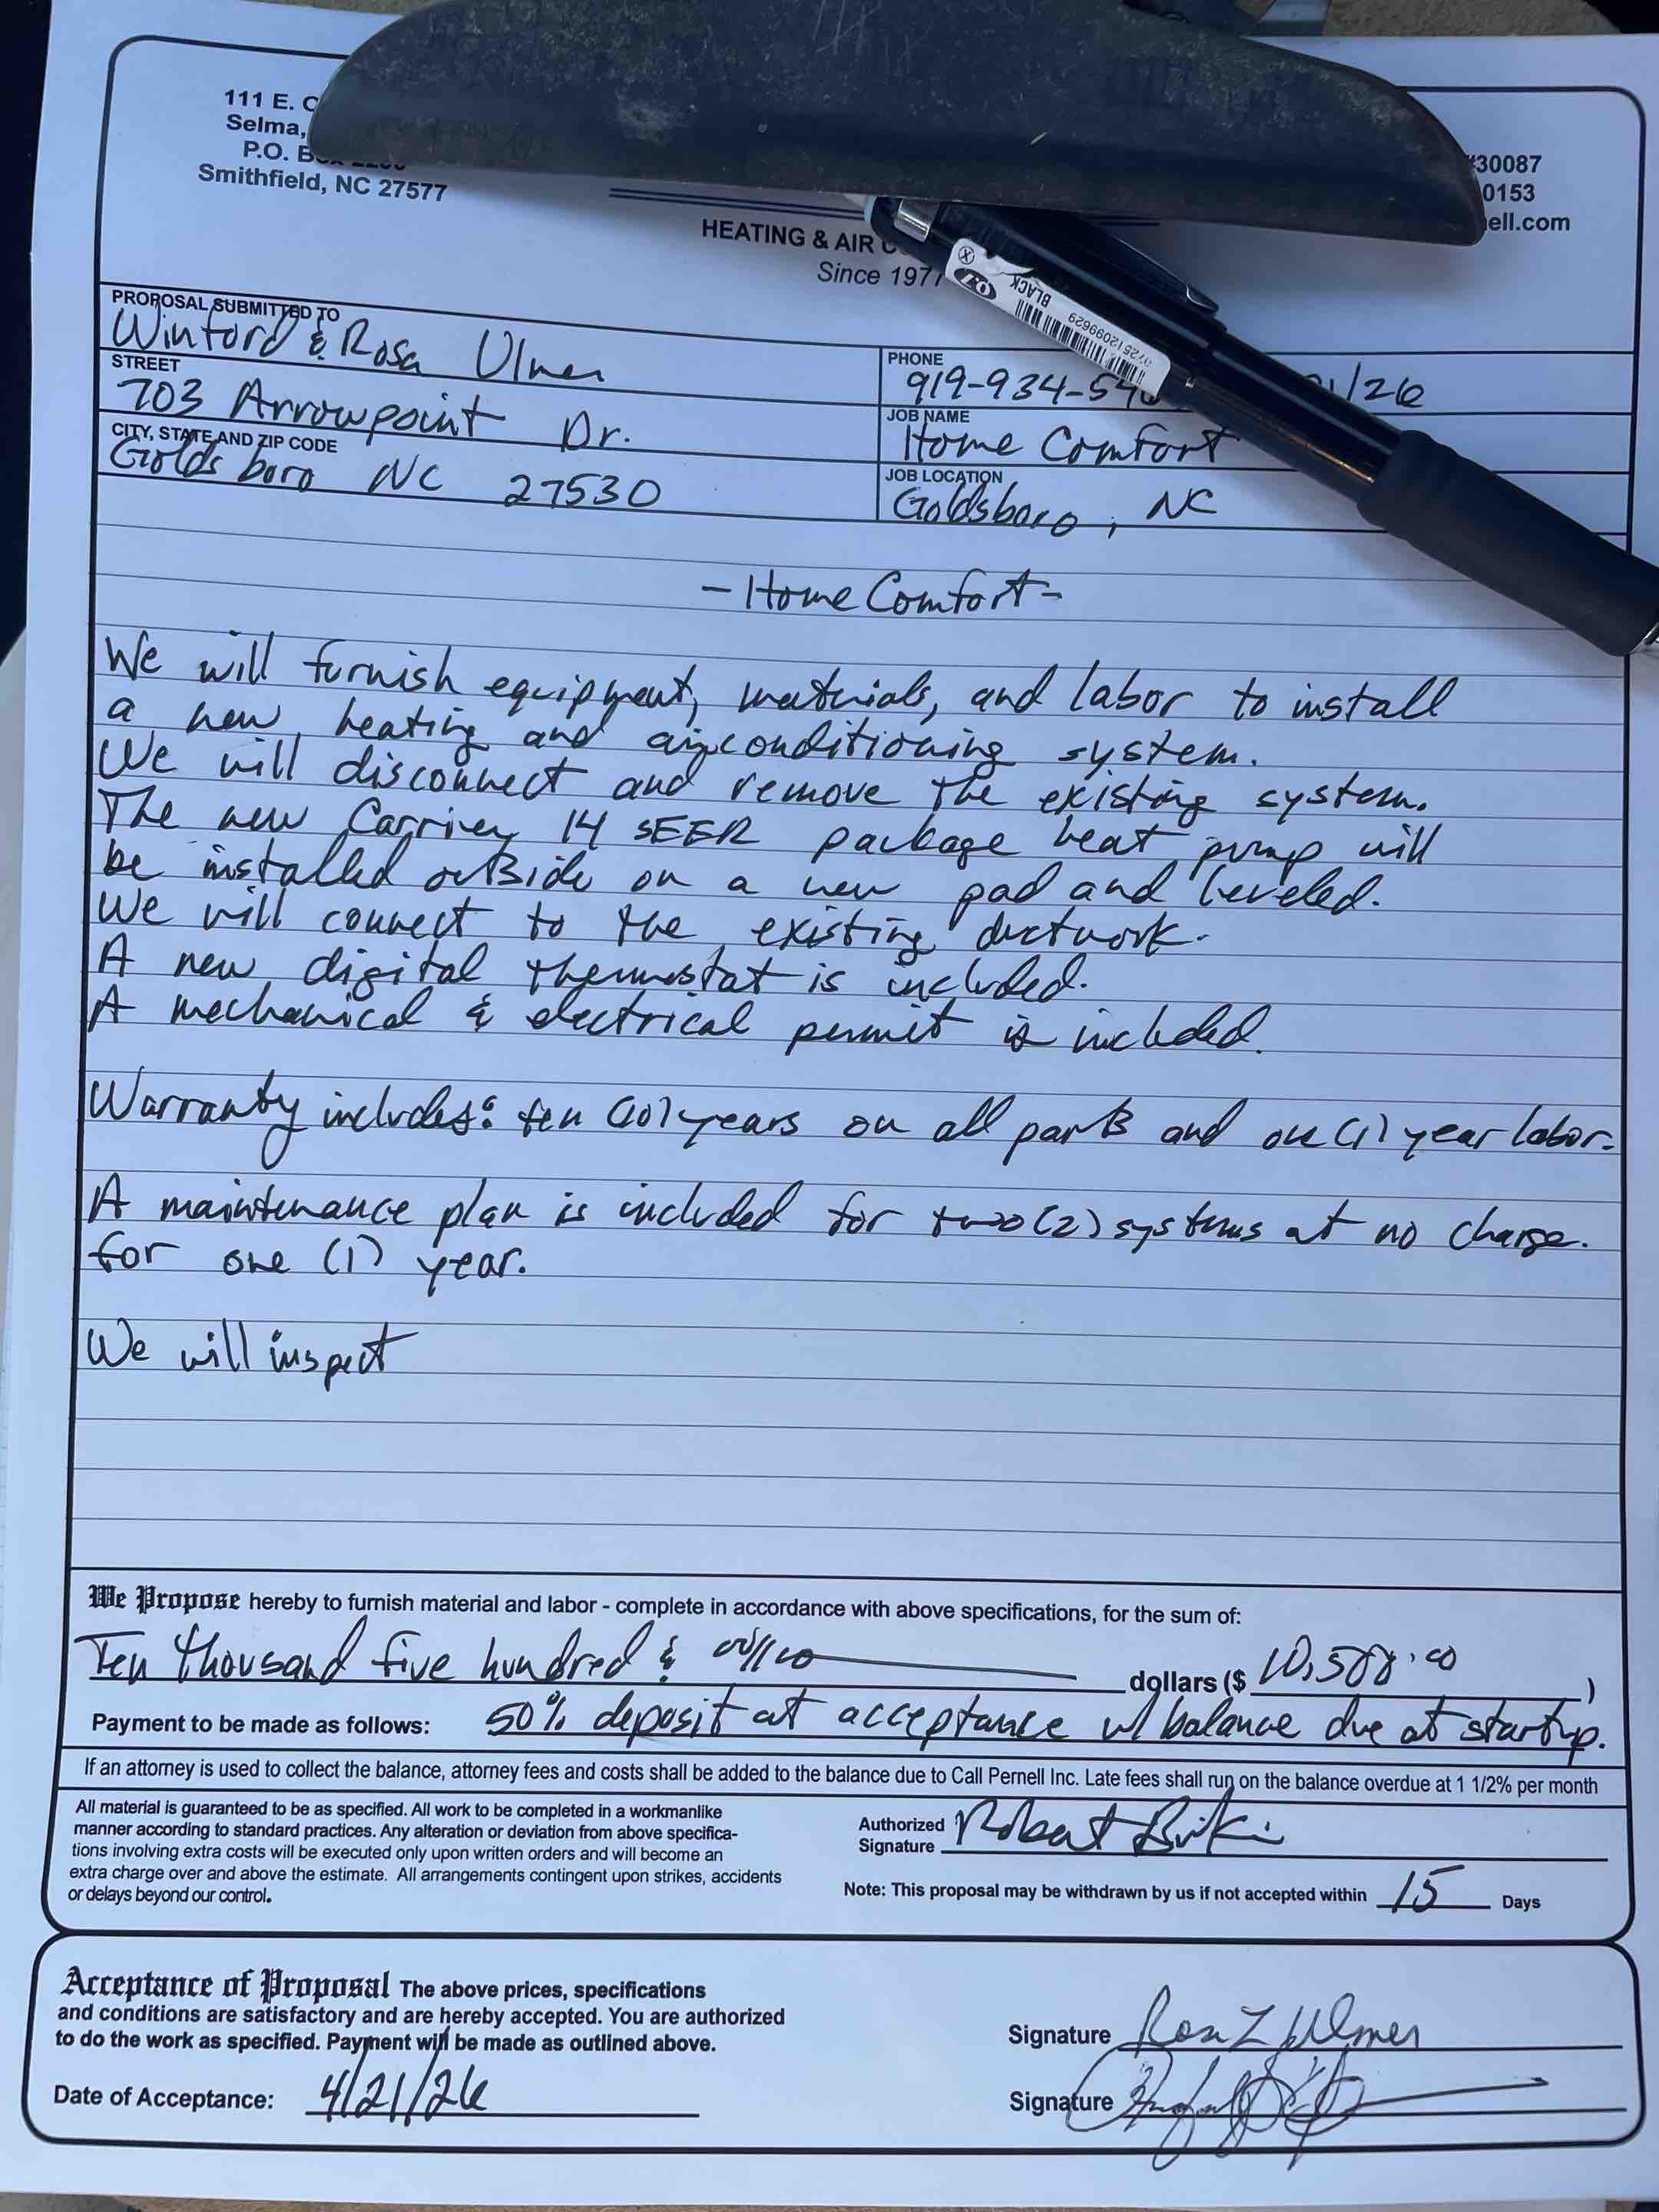 111 E. C
Selma,
P.O. B
Smithfield, NC 27577
#30087
0153
ell.com
HEATING & AIR C
Since 1977
PROPOSAL SUBMITTED TO
Winford & Rosa Ulmer
PHONE
919-934-54
1/26
STREET
703 Arrowpoint Dr.
JOB NAME
Home Comfort
CITY, STATE AND ZIP CODE
Goldsboro NC 27530
JOB LOCATION
Goldsboro, NC
BLACK
- Home Comfort -
We will furnish equipment, materials, and labor to install
a new heating and airconditioning system.
We will disconnect and remove the existing system.
The new Carrier 14 SEER package heat pump will
be installed outside on a new pad and leveled.
We will connect to the existing ductwork.
A new digital thermostat is included.
A mechanical & electrical permit is included.
Warranty includes: ten (10) years on all parts and one (1) year labor.
A maintenance plan is included for two (2) systems at no charge.
for one (1) year.
We will inspect
We Propose hereby to furnish material and labor - complete in accordance with above specifications, for the sum of:
Ten thousand five hundred & 00/100 dollars ($ 10,500.00 )
Payment to be made as follows: 50% deposit at acceptance w/ balance due at startup.
If an attorney is used to collect the balance, attorney fees and costs shall be added to the balance due to Call Pernell Inc. Late fees shall run on the balance overdue at 1 1/2% per month
All material is guaranteed to be as specified. All work to be completed in a workmanlike
manner according to standard practices. Any alteration or deviation from above specifica-
tions involving extra costs will be executed only upon written orders and will become an
extra charge over and above the estimate. All arrangements contingent upon strikes, accidents
or delays beyond our control.
Authorized
Signature Robert
Note: This proposal may be withdrawn by us if not accepted within 15 Days
Acceptance of Proposal The above prices, specifications
and conditions are satisfactory and are hereby accepted. You are authorized
to do the work as specified. Payment will be made as outlined above.
Date of Acceptance: 4/21/26
Signature Rosa Z Ulmer
Signature